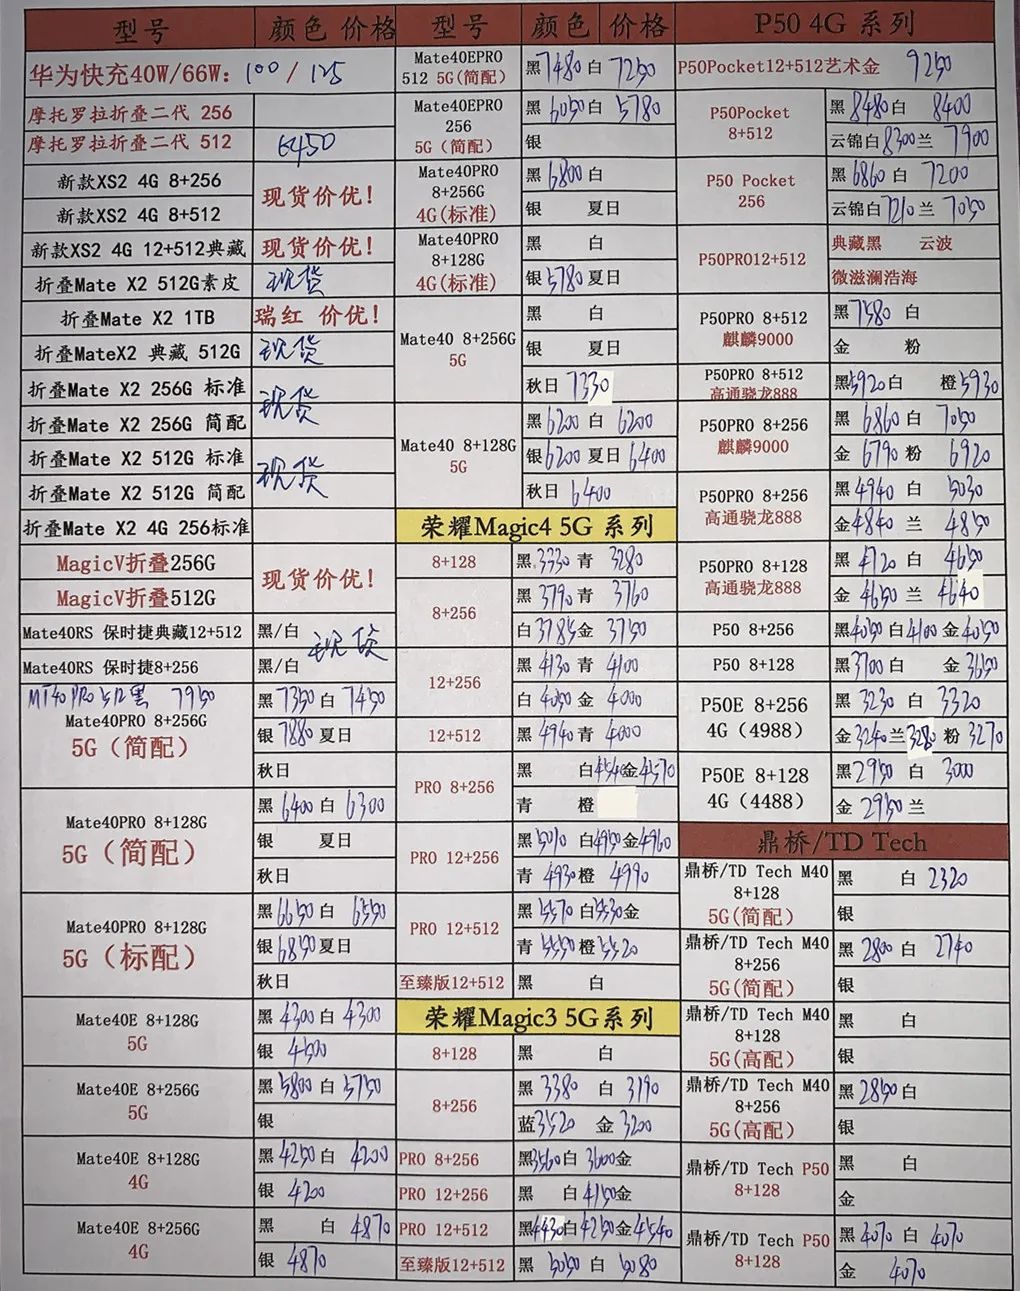 型号 颜色 价格
华为快充40W/66W: 100 / 125
摩托罗拉折叠二代 256
摩托罗拉折叠二代 512 6450
新款XS2 4G 8+256
现货价优!
新款XS2 4G 8+512
新款XS2 4G 12+512典藏 现货价优!
折叠Mate X2 512G素皮 现货
折叠Mate X2 1TB 瑞红 价优!
折叠MateX2 典藏 512G 现货
折叠Mate X2 256G 标准
现货
折叠Mate X2 256G 简配
折叠Mate X2 512G 标准
现货
折叠Mate X2 512G 简配
折叠Mate X2 4G 256标准
MagicV折叠256G
现货价优!
MagicV折叠512G
Mate40RS 保时捷典藏12+512 黑/白
现货
Mate40RS 保时捷8+256 黑/白
MT40 PRO 512黑 7950
Mate40PRO 8+256G
5G（简配）
黑 7350 白 7450
银 7880 夏日
秋日
Mate40PRO 8+128G
5G（简配）
黑 6400 白 6300
银 夏日
秋日
Mate40PRO 8+128G
5G（标配）
黑 6650 白 6550
银 6850 夏日
秋日
Mate40E 8+128G
5G
黑 4300 白 4300
银 4500
Mate40E 8+256G
5G
黑 5800 白 5750
银
Mate40E 8+128G
4G
黑 4250 白 4200
银 4200
Mate40E 8+256G
4G
黑 白 4870
银 4870
型号 颜色 价格
Mate40EPRO
512 5G(简配)
黑 7480 白 7250
Mate40EPRO
256
5G（简配）
黑 6050 白 5780
银
Mate40PRO
8+256G
4G(标准)
黑 6800 白
银 夏日
Mate40PRO
8+128G
4G(标准)
黑 白
银 5780 夏日
Mate40 8+256G
5G
黑 白
银 夏日
秋日 7330
Mate40 8+128G
5G
黑 6200 白 6200
银 6200 夏日 6400
秋日 6400
荣耀Magic4 5G 系列
8+128 黑 3330 青 3280
8+256
黑 3790 青 3760
白 3785 金 3750
12+256
黑 4130 青 4100
白 4050 金 4000
12+512 黑 4940 青 4000
PRO 8+256
黑 白 4540 金 4570
青 橙
PRO 12+256
黑 5010 白 4950 金 4960
青 4930 橙 4990
PRO 12+512
黑 5570 白 5530 金
青 5550 橙 5520
至臻版12+512 黑 白
荣耀Magic3 5G系列
8+128 黑 白
8+256
黑 3380 白 3190
蓝 3520 金 3200
PRO 8+256 黑 3560 白 3600 金
PRO 12+256 黑 白 4150 金
PRO 12+512 黑 4430 白 4250 金 4540
至臻版12+512 黑 5050 白 5080
P50 4G 系列
P50Pocket12+512艺术金 9250
P50Pocket
8+512
黑 8480 白 8400
云锦白 8300 兰 7900
P50 Pocket
256
黑 6860 白 7200
云锦白 7210 兰 7050
P50PRO12+512
典藏黑 云波
微滋澜浩海
P50PRO 8+512
麒麟9000
黑 7580 白
金 粉
P50PRO 8+512
高通骁龙888
黑 5920 白 橙 5930
P50PRO 8+256
麒麟9000
黑 6860 白 7050
金 6790 粉 6920
P50PRO 8+256
高通骁龙888
黑 4940 白 5030
金 4840 兰 4850
P50PRO 8+128
高通骁龙888
黑 4720 白 4650
金 4650 兰 4640
P50 8+256 黑 4050 白 4100 金 4050
P50 8+128 黑 3700 白 金 3650
P50E 8+256
4G（4988）
黑 3230 白 3320
金 3240 兰 3280 粉 3270
P50E 8+128
4G（4488）
黑 2950 白 3000
金 2950 兰
鼎桥/TD Tech
鼎桥/TD Tech M40
8+128
5G(简配)
黑 白 2320
银
鼎桥/TD Tech M40
8+256
5G(简配)
黑 2800 白 2740
银
鼎桥/TD Tech M40
8+128
5G(高配)
黑 白
银
鼎桥/TD Tech M40
8+256
5G(高配)
黑 2850 白
银
鼎桥/TD Tech P50
8+128
黑 白
金
鼎桥/TD Tech P50
8+128
黑 4070 白 4070
金 4070